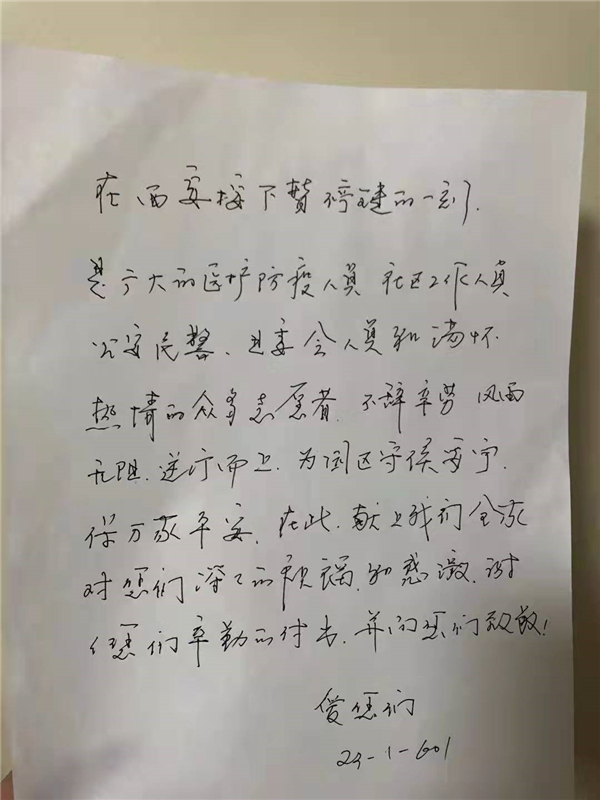 在西安按下暂停键的一刻,
是广大的医护防疫人员 社区工作人员
公安民警、居委会人员和满怀
热情的众多志愿者, 不辞辛劳 风雨
无阻, 逆行而上, 为园区守候安宁,
保万家平安, 在此, 献上我们全家
对您们深深的祝福, 和感激, 谢
您们辛勤的付出, 并向您们致敬!
爱您们
29-1-601